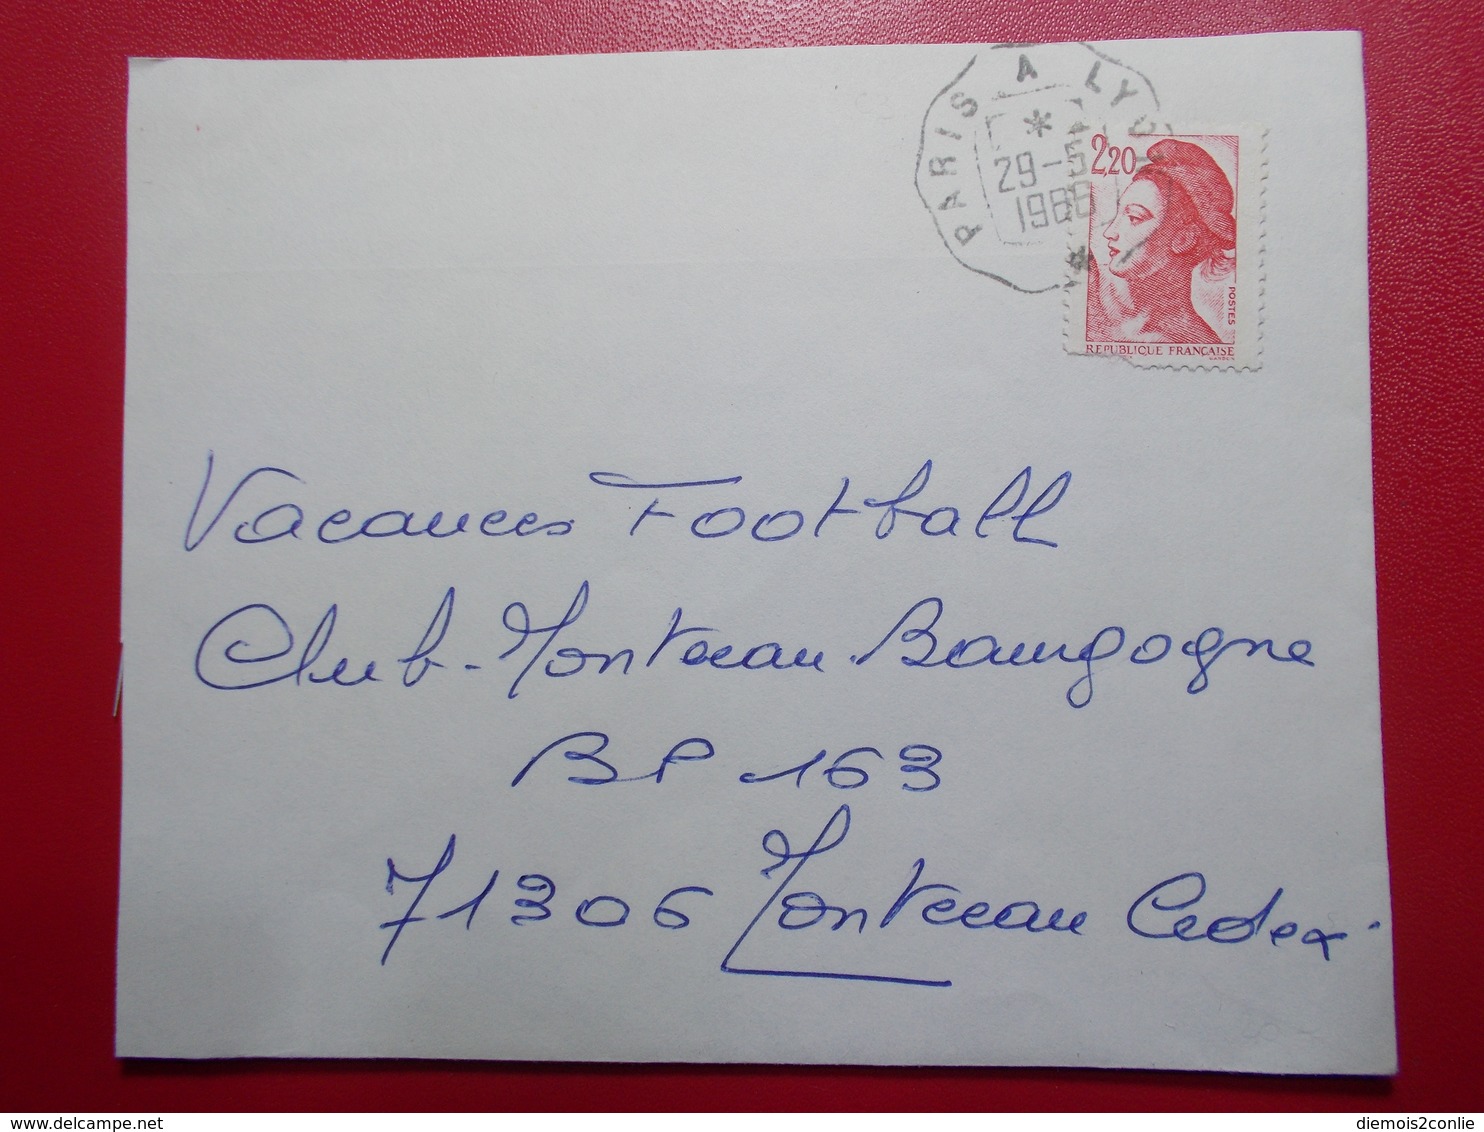 PARIS A LYON
29-5
1986
2,20
POSTES
REPUBLIQUE FRANÇAISE
GANDON
Vacances Football
Club-Montceau Bourgogne
BP 163
71306 Montceau Cedex
diemois2conlie